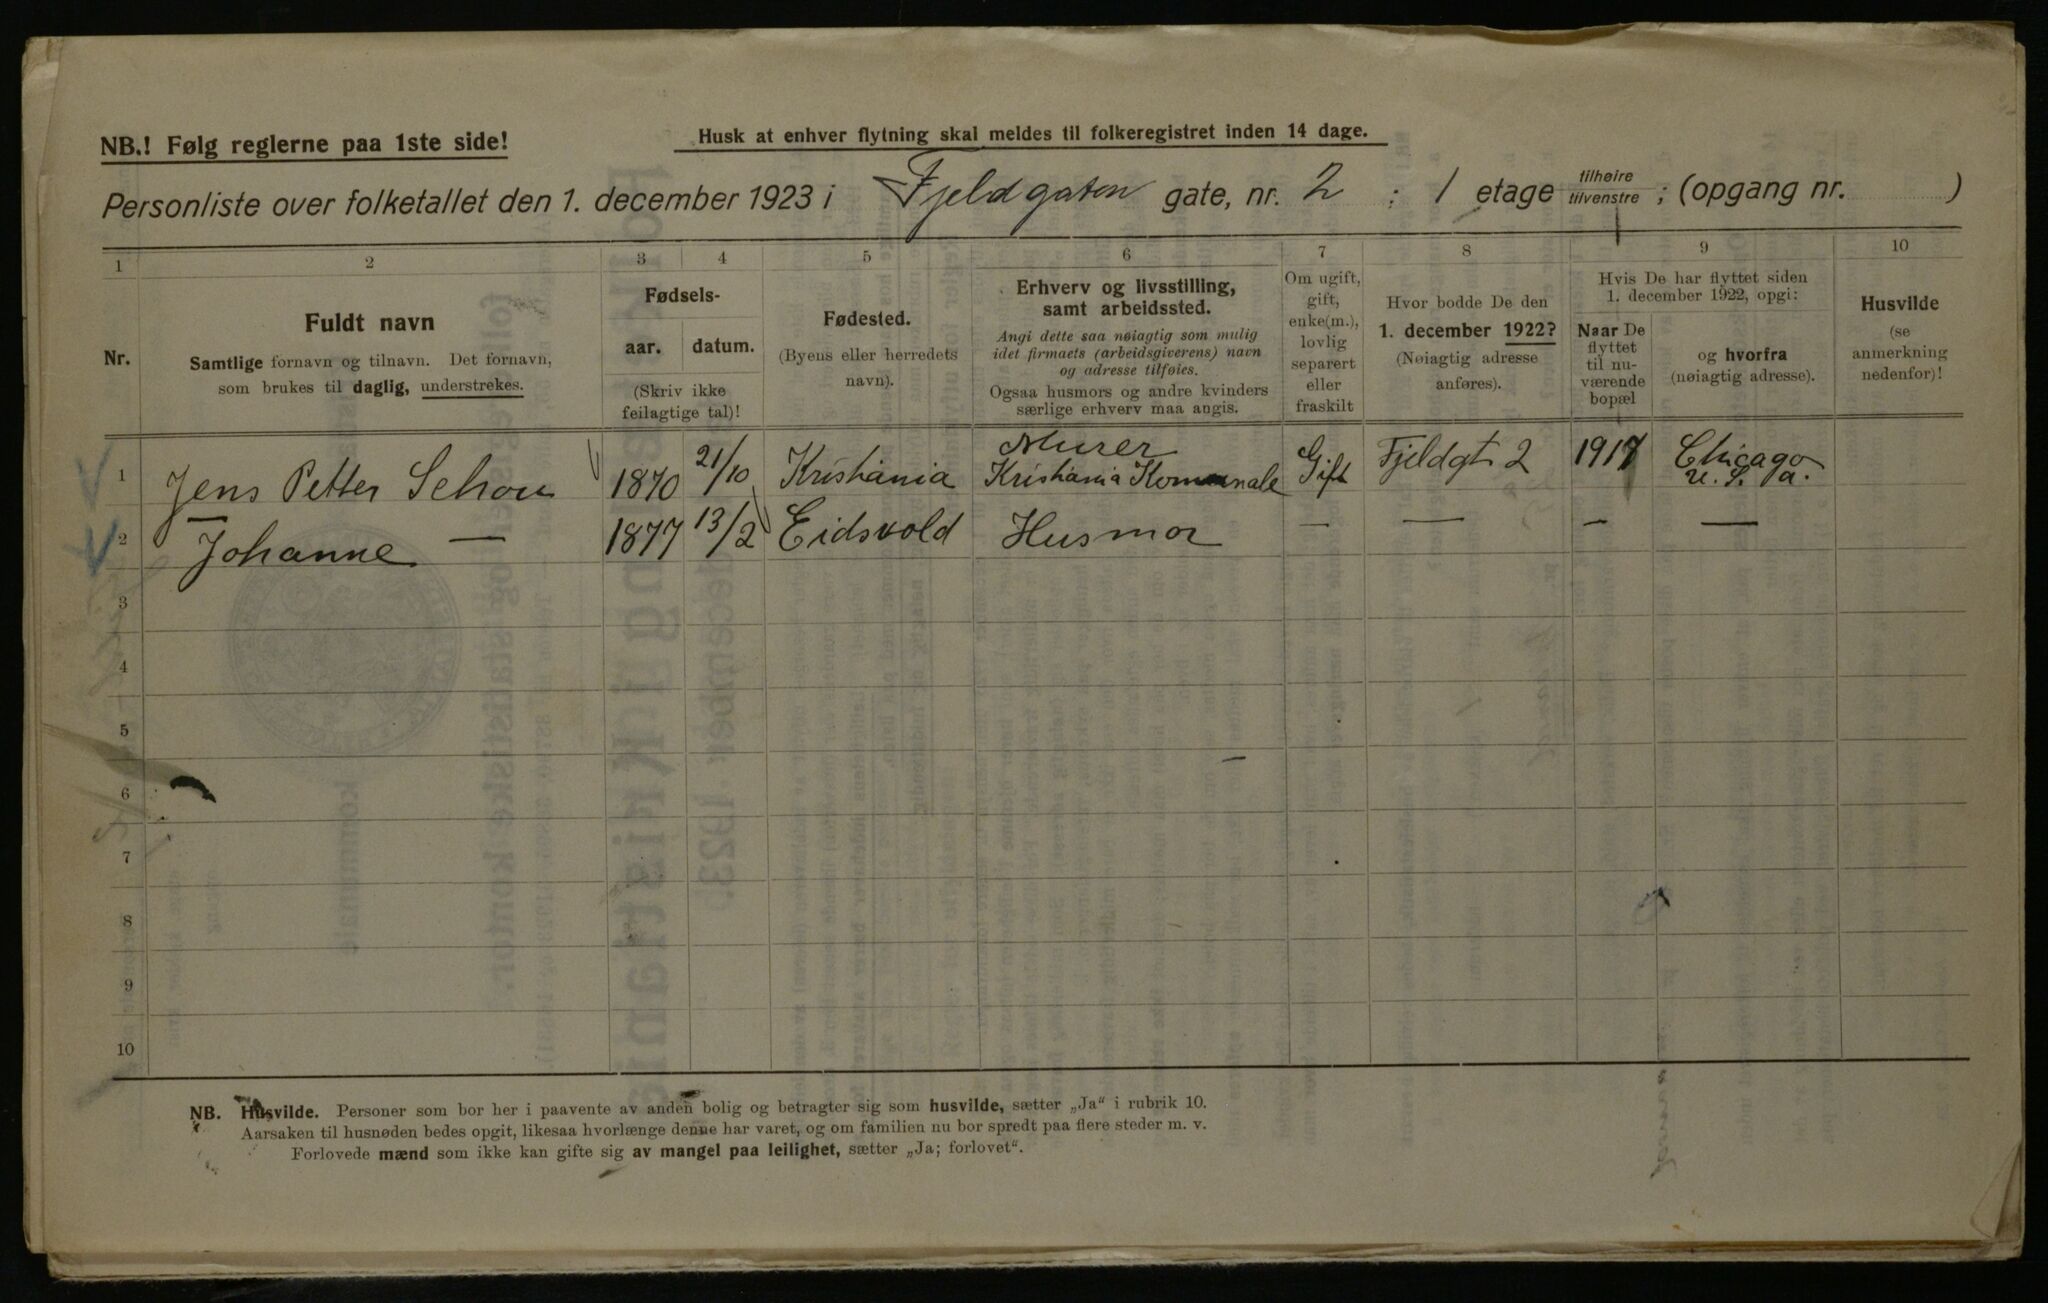 NB.! Følg reglerne paa 1ste side!
Husk at enhver flytning skal meldes til folkeregistret inden 14 dage.
Personliste over folketallet den 1. december 1923 i Fjeldgaten gate, nr. 2 ; 1 etage tilhøire tilvenstre ; (opgang nr. )
1 2 3 4 5 6 7 8 9 10
Nr.
Fuldt navn
Samtlige fornavn og tilnavn. Det fornavn,
som brukes til daglig, understrekes.
Fødsels-
aar. datum.
(Skriv ikke
feilagtige tal)!
Fødested.
(Byens eller herredets
navn).
Erhverv og livsstilling,
samt arbeidssted.
Angi dette saa nøiagtig som mulig
idet firmaets (arbeidsgiverens) navn
og adresse tilføies.
Ogsaa husmors og andre kvinders
særlige erhverv maa angis.
Om ugift,
gift,
enke(m.),
lovlig
separert
eller
fraskilt
Hvor bodde De den
1. december 1922?
(Nøiagtig adresse
anføres).
Hvis De har flyttet siden
1. december 1922, opgi:
Naar De
flyttet
til nu-
værende
bopæl
og hvorfra
(nøiagtig adresse).
Husvilde
(se
anmerkning
nedenfor)!
1 Jens Petter Schou 1870 21/10 Kristiania Murer Kristiania Komunale Gift Fjeldgt 2 1917 Chicago U. S. a.
2 Johanne — 1877 13/2 Eidsvold Husmor — — — —
3
4
5
6
7
8
9
10
NB. Husvilde. Personer som bor her i paavente av anden bolig og betragter sig som husvilde, sætter „Ja“ i rubrik 10.
Aarsaken til husnøden bedes opgit, likesaa hvorlænge denne har varet, og om familien nu bor spredt paa flere steder m. v.
Forlovede mænd som ikke kan gifte sig av mangel paa leilighet, sætter „Ja; forlovet“.